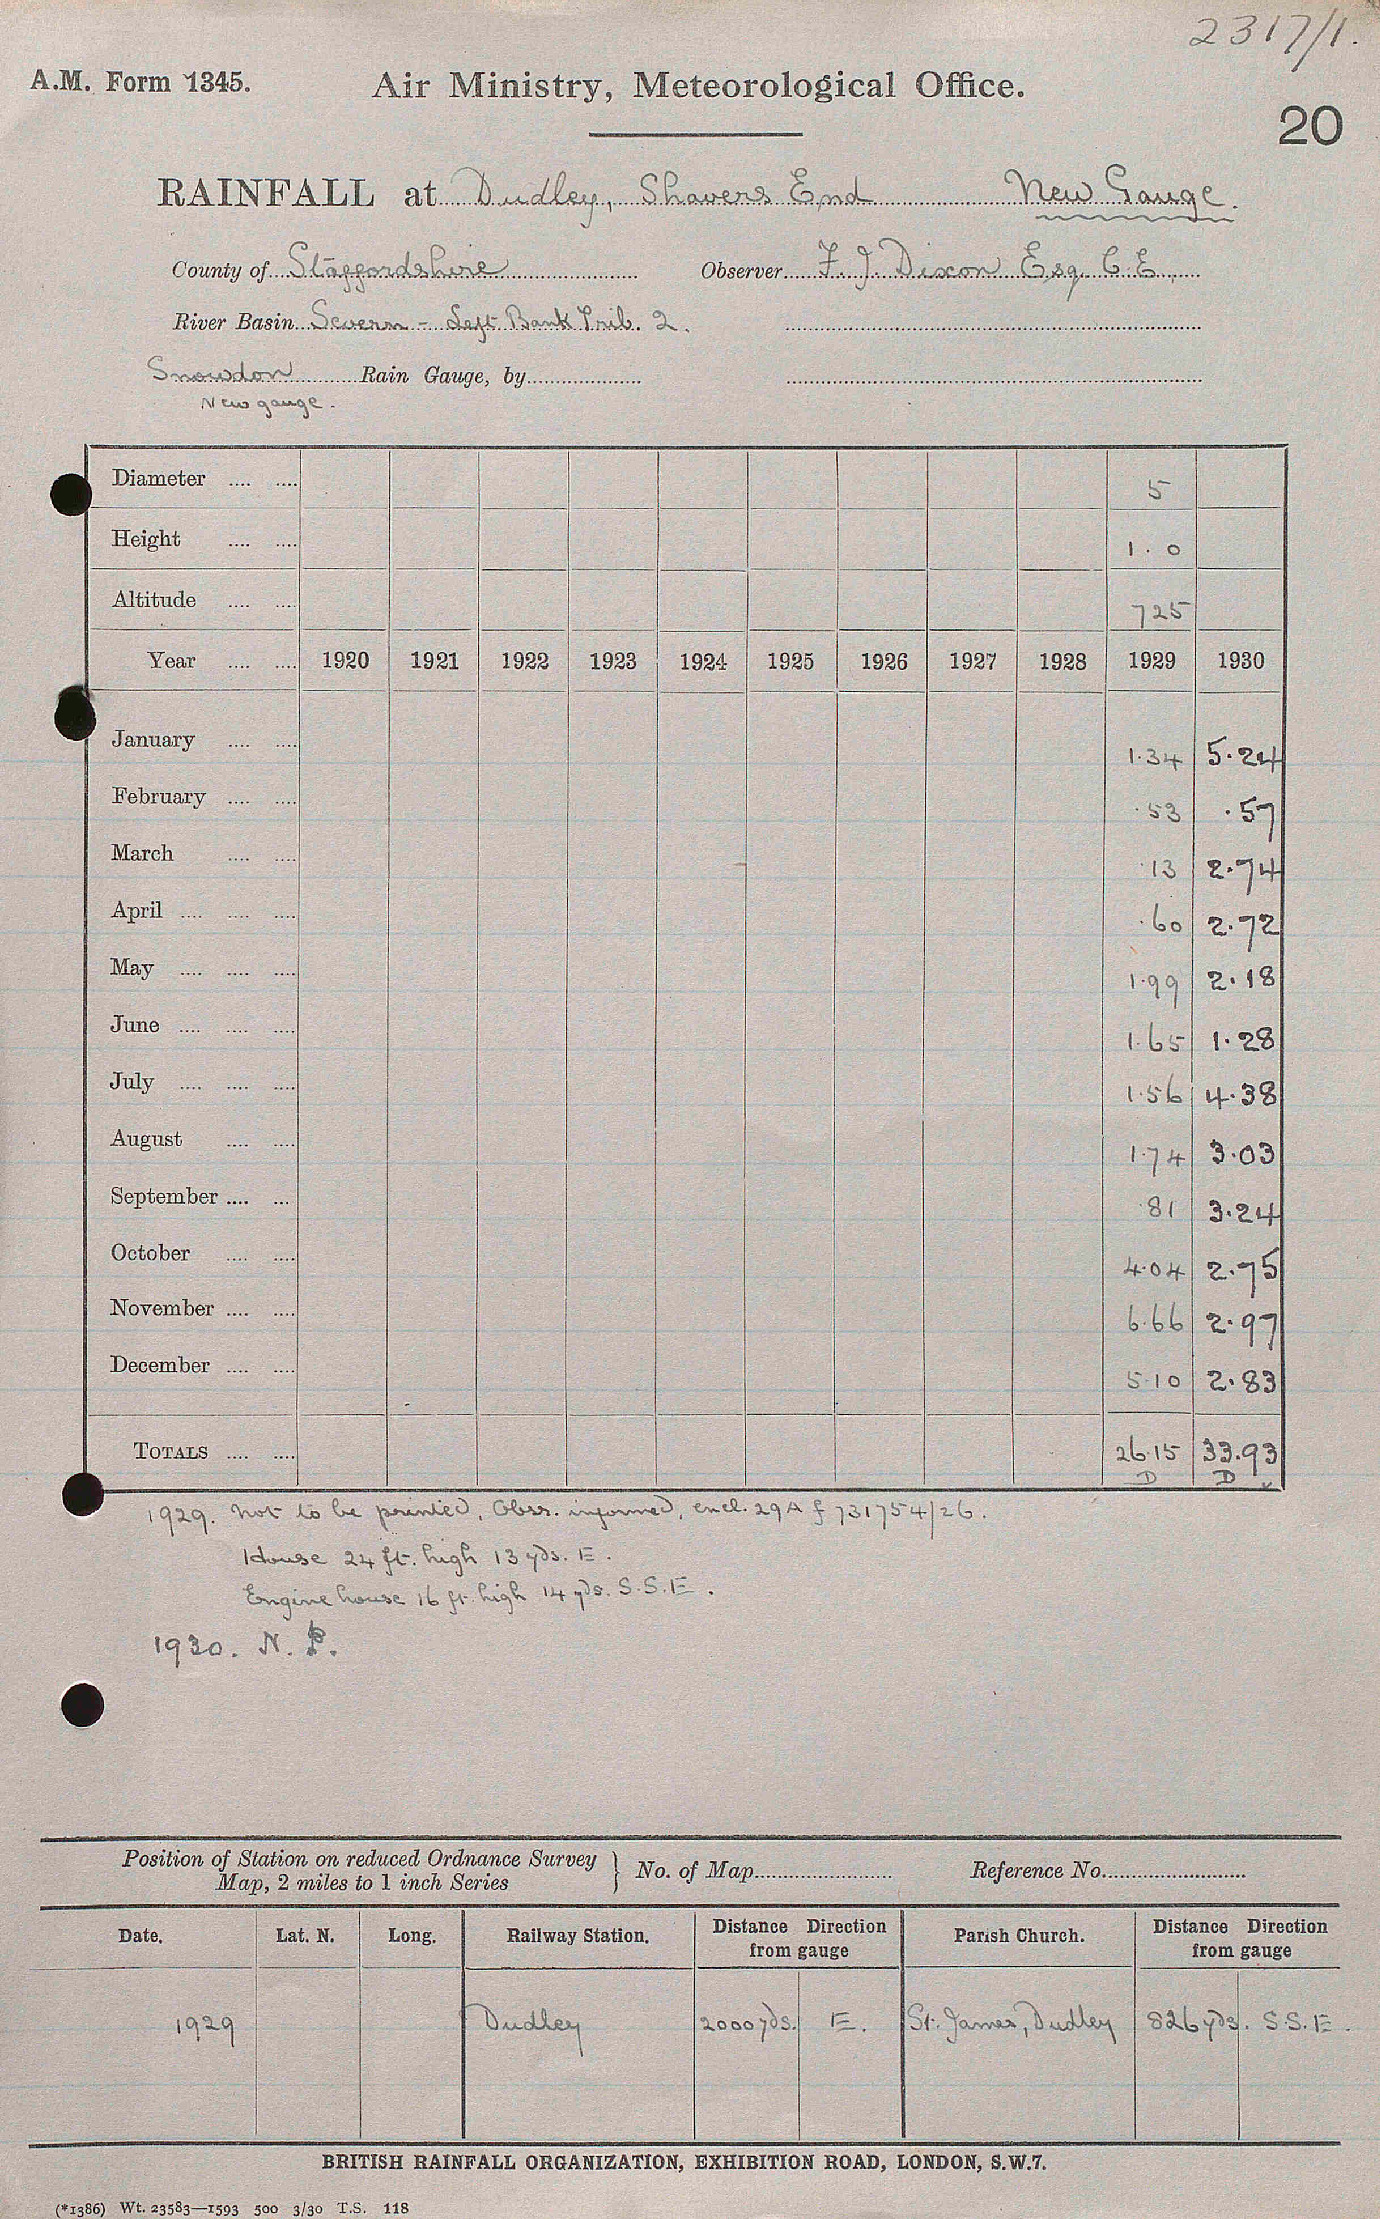 2317/1.
A.M. Form 1345. Air Ministry, Meteorological Office.
20
RAINFALL at Dudley, Shavers End New Gauge.
County of Staffordshire Observer F. J. Dixon Esq. C.E.,
River Basin Severn - Left Bank Trib. 2.
Snowdon Rain Gauge, by
New gauge.
Diameter .... .... 5
Height .... .... 1.0
Altitude .... .... 725
Year .... .... 1920 1921 1922 1923 1924 1925 1926 1927 1928 1929 1930
January .... .... 1.34 5.24
February .... .... .53 .57
March .... .... .13 2.74
April .... .... .... .60 2.72
May .... .... .... 1.99 2.18
June .... .... .... 1.65 1.28
July .... .... .... 1.56 4.38
August .... .... 1.74 3.03
September .... .... .81 3.24
October .... .... 4.04 2.75
November .... .... 6.66 2.97
December .... .... 5.10 2.83
TOTALS .... .... 26.15 33.93
D D
1929. Not to be printed, Obsr. informed, encl. 29A f 731754/26.
House 24 ft. high 13 yds. E.
Engine house 16 ft. high 14 yds. S.S.E.
1930. N. P.
Position of Station on reduced Ordnance Survey } No. of Map Reference No.
Map, 2 miles to 1 inch Series
Date. Lat. N. Long. Railway Station. Distance Direction from gauge Parish Church. Distance Direction from gauge
1929 Dudley 2000 yds. E. St. James, Dudley 826 yds. S.S.E.
BRITISH RAINFALL ORGANIZATION, EXHIBITION ROAD, LONDON, S.W.7.
(*1386) Wt. 23583—1593 500 3/30 T.S. 118